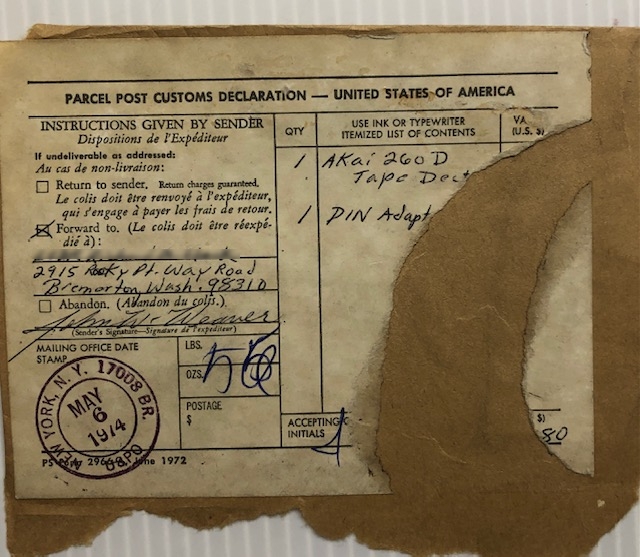 PARCEL POST CUSTOMS DECLARATION — UNITED STATES OF AMERICA
INSTRUCTIONS GIVEN BY SENDER
Dispositions de l'Expéditeur
If undeliverable as addressed:
Au cas de non-livraison:
Return to sender. Return charges guaranteed.
Le colis doit être renvoyé à l'expéditeur,
qui s'engage à payer les frais de retour.
Forward to. (Le colis doit être réexpé-
dié à):
2915 Rocky Pt. Way Road
Bremerton, Wash. 98310
Abandon. (Abandon du colis.)
John Mc Weaver
(Sender's Signature—Signature de l'expéditeur)
MAILING OFFICE DATE
STAMP
NEW YORK, N.Y. 17008 BR.
MAY
6
1974
USPO
June 1972
LBS.
OZS.
56
POSTAGE
$
QTY
USE INK OR TYPEWRITER
ITEMIZED LIST OF CONTENTS
VA
(U.S. $)
1 AKai 260 D
Tape Deck
1 DIN Adapt
ACCEPTING
INITIALS
$)
80